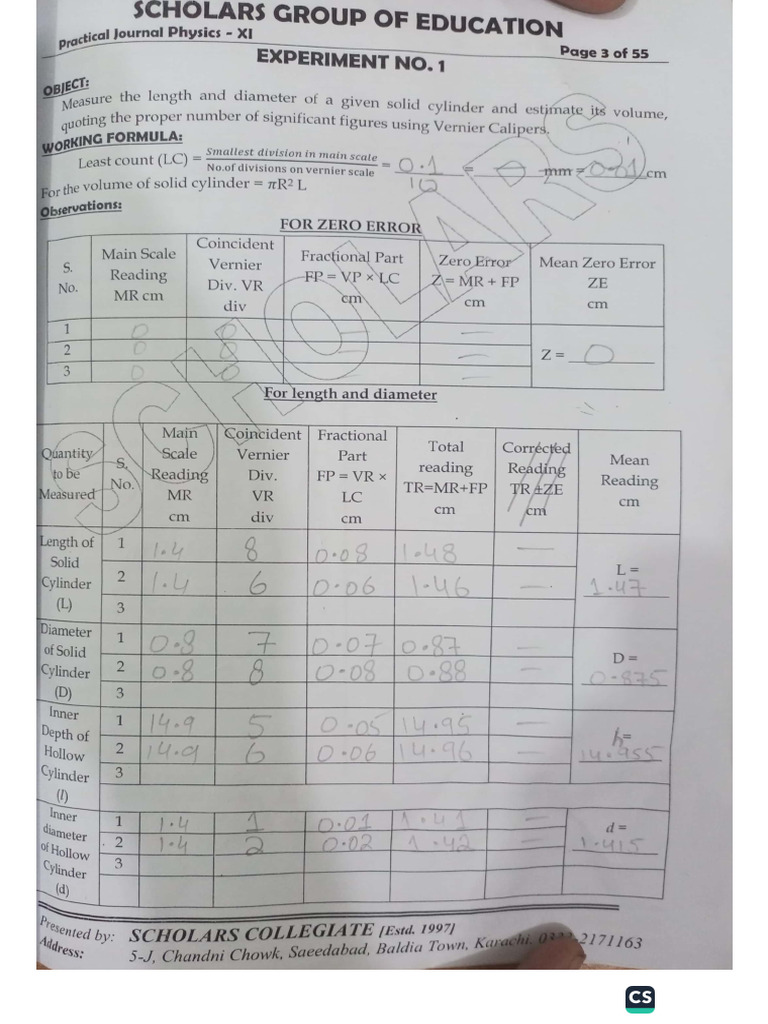 SCHOLARS GROUP OF EDUCATION
Practical Journal Physics - XI
Page 3 of 55
EXPERIMENT NO. 1
OBJECT:
Measure the length and diameter of a given solid cylinder and estimate its volume,
quoting the proper number of significant figures using Vernier Calipers.
WORKING FORMULA:
Least count (LC) = Smallest division in main scale / No.of divisions on vernier scale = 0.1 / 10 = 0 mm = 0.01 cm
For the volume of solid cylinder = πR² L
Observations:
FOR ZERO ERROR
S. No. | Main Scale Reading MR cm | Coincident Vernier Div. VR div | Fractional Part FP = VP × LC cm | Zero Error Z = MR + FP cm | Mean Zero Error ZE cm
1 | 0 | 0 | — | — | Z = 0
2 | 0 | 0 | — | —
3 | 0 | 0 | — | —
For length and diameter
Quantity to be Measured | S. No. | Main Scale Reading MR cm | Coincident Vernier Div. VR div | Fractional Part FP = VR × LC cm | Total reading TR=MR+FP cm | Corrected Reading TR ±ZE cm | Mean Reading cm
Length of Solid Cylinder (L) | 1 | 1.4 | 8 | 0.08 | 1.48 | — | L = 1.47
2 | 1.4 | 6 | 0.06 | 1.46 | —
3
Diameter of Solid Cylinder (D) | 1 | 0.8 | 7 | 0.07 | 0.87 | — | D = 0.875
2 | 0.8 | 8 | 0.08 | 0.88 | —
3
Inner Depth of Hollow Cylinder (l) | 1 | 14.9 | 5 | 0.05 | 14.95 | — | h= 14.955
2 | 14.9 | 6 | 0.06 | 14.96 | —
3
Inner diameter of Hollow Cylinder (d) | 1 | 1.4 | 1 | 0.01 | 1.41 | — | d = 1.415
2 | 1.4 | 2 | 0.02 | 1.42 | —
3
SCHOLARS
Presented by: SCHOLARS COLLEGIATE [Estd. 1997]
Address: 5-J, Chandni Chowk, Saeedabad, Baldia Town, Karachi. 2171163
CS